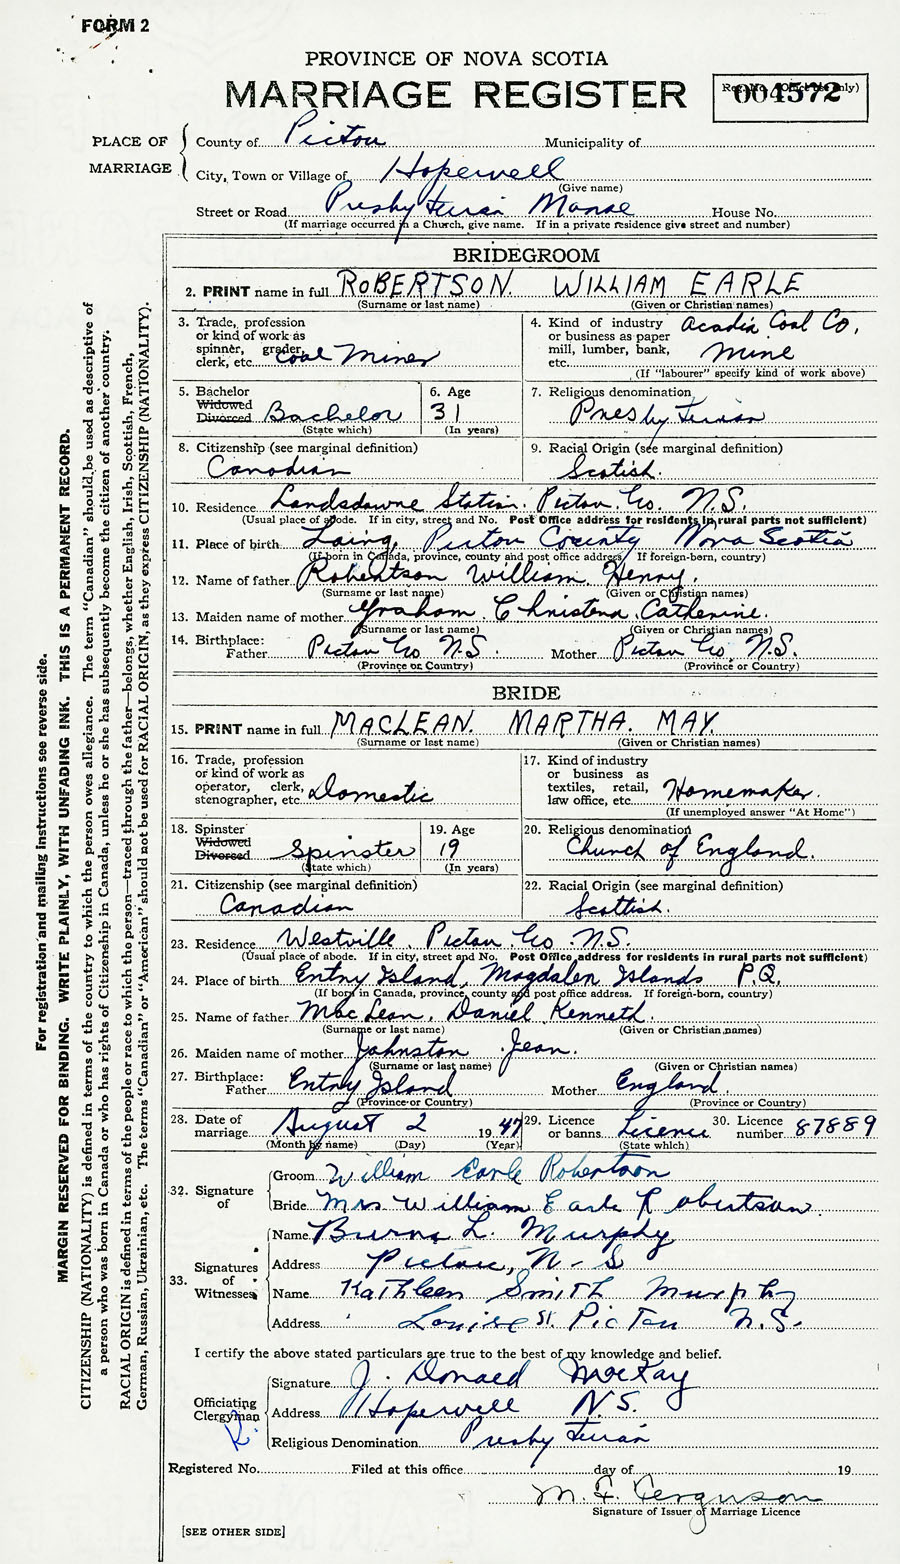 FORM 2
PROVINCE OF NOVA SCOTIA
MARRIAGE REGISTER
004572
PLACE OF MARRIAGE
County of Pictou Municipality of
City, Town or Village of Hopewell
(Give name)
Street or Road Presbyterian Manse House No.
(If marriage occurred in a Church, give name. If in a private residence give street and number)
BRIDEGROOM
2. PRINT name in full ROBERTSON. WILLIAM EARLE
(Surname or last name) (Given or Christian names)
3. Trade, profession or kind of work as spinner, grader, clerk, etc. Coal Miner
4. Kind of industry or business as paper mill, lumber, bank, etc. Acadia Coal Co, Mine
(If "labourer" specify kind of work above)
5. Bachelor Widowed Divorced Bachelor
(State which)
6. Age 31
(In years)
7. Religious denomination
Presbyterian
8. Citizenship (see marginal definition)
Canadian
9. Racial Origin (see marginal definition)
Scotish.
10. Residence Landsdowne Station. Pictou Co. N.S.
(Usual place of abode. If in city, street and No. Post Office address for residents in rural parts not sufficient)
11. Place of birth Laing, Pictou County Nova Scotia
(If born in Canada, province, county and post office address. If foreign-born, country)
12. Name of father Robertson William Henry.
(Surname or last name) (Given or Christian names)
13. Maiden name of mother Graham. Christena Catherine.
(Surname or last name) (Given or Christian names)
14. Birthplace:
Father Pictou Co N.S. Mother Pictou Co, N.S.
(Province or Country) (Province or Country)
BRIDE
15. PRINT name in full MACLEAN. MARTHA. MAY.
(Surname or last name) (Given or Christian names)
16. Trade, profession or kind of work as operator, clerk, stenographer, etc. Domestic
17. Kind of industry or business as textiles, retail, law office, etc. Homemaker.
(If unemployed answer "At Home")
18. Spinster Widowed Divorced Spinster
(State which)
19. Age 19
(In years)
20. Religious denomination
Church of England.
21. Citizenship (see marginal definition)
Canadian
22. Racial Origin (see marginal definition)
Scottish.
23. Residence Westville. Pictou Co. N.S.
(Usual place of abode. If in city, street and No. Post Office address for residents in rural parts not sufficient)
24. Place of birth Entry Island, Magdalen Islands P.Q.
(If born in Canada, province, county and post office address. If foreign-born, country)
25. Name of father MacLean, Daniel Kenneth.
(Surname or last name) (Given or Christian names)
26. Maiden name of mother Johnston Jean.
(Surname or last name) (Given or Christian names)
27. Birthplace:
Father Entry Island Mother England.
(Province or Country) (Province or Country)
28. Date of marriage August 2 1947
(Month by name) (Day) (Year)
29. Licence or banns Licence
(State which)
30. Licence number 87889
32. Signature of
Groom William Earle Robertson
Bride Mrs William Earle Robertson.
33. Signatures of Witnesses
Name Burns L. Murphy
Address Pictou, N-S
Name Kathleen Smith Murphy
Address Louise St. Pictou N.S.
I certify the above stated particulars are true to the best of my knowledge and belief.
Officiating Clergyman
Signature J. Donald MacKay
Address Hopewell N.S.
Religious Denomination Presbyterian
Registered No. Filed at this office day of 19
M. F. Ferguson
Signature of Issuer of Marriage Licence
[SEE OTHER SIDE]
For registration and mailing instructions see reverse side.
MARGIN RESERVED FOR BINDING. WRITE PLAINLY, WITH UNFADING INK. THIS IS A PERMANENT RECORD.
CITIZENSHIP (NATIONALITY) is defined in terms of the country to which the person owes allegiance. The term "Canadian" should be used as descriptive of
a person who was born in Canada or who has rights of Citizenship in Canada, unless he or she has subsequently become the citizen of another country.
RACIAL ORIGIN is defined in terms of the people or race to which the person—traced through the father—belongs, whether English, Irish, Scottish, French,
German, Russian, Ukrainian, etc. The terms "Canadian" or "American" should not be used for RACIAL ORIGIN, as they express CITIZENSHIP (NATIONALITY).